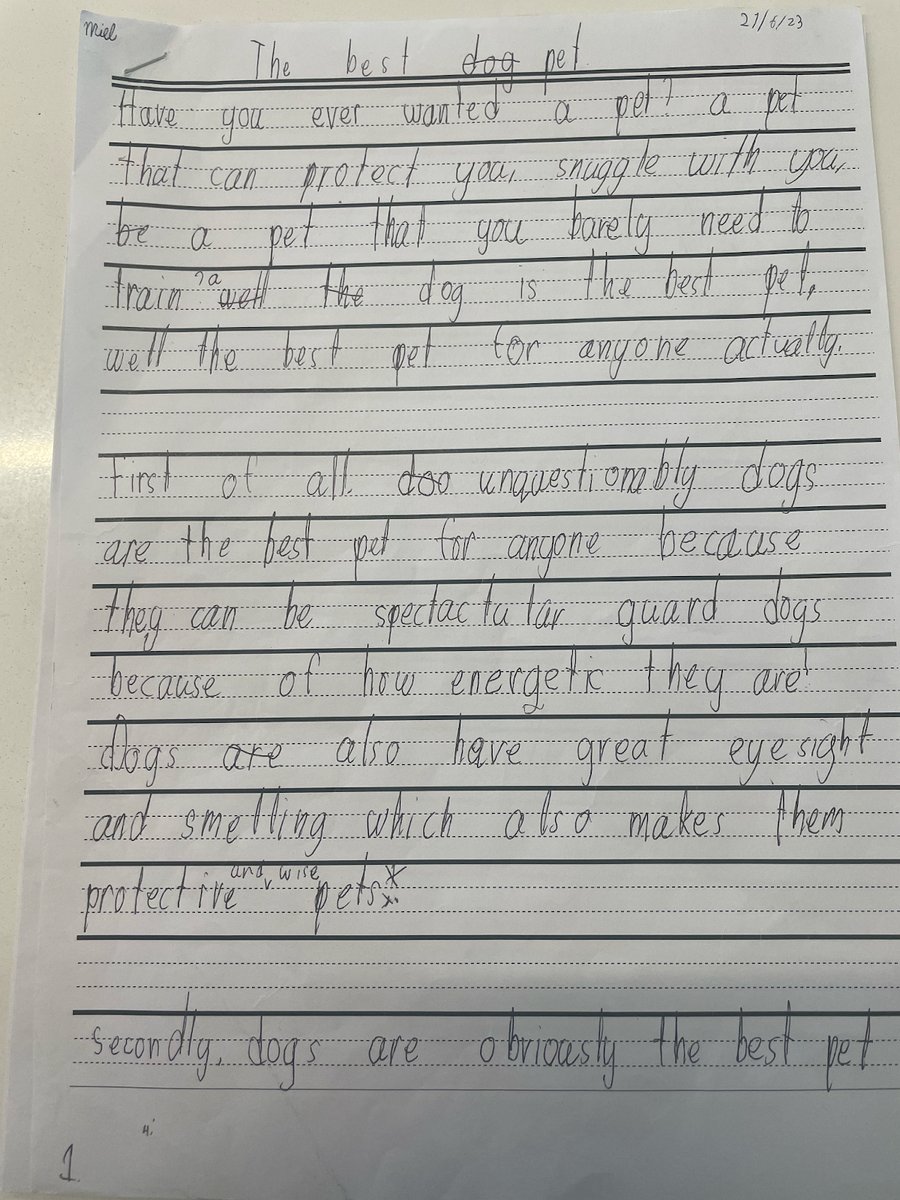 Miel
21/6/23
The best dog pet
Have you ever wanted a pet? a pet
that can protect you, snuggle with you,
be a pet that you barely need to
train? a well the dog is the best pet,
well the best pet for anyone actually.
First of all doo unquestionably dogs
are the best pet for anyone because
they can be spectacular guard dogs
because of how energetic they are!
dogs are also have great eyesight
and smelling which also makes them
protective and wise pets.*
secondly, dogs are obviously the best pet
1